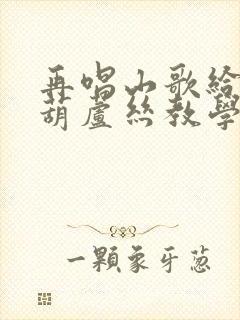 再唱山歌給
葫蘆絲教學
一顆象牙蔥